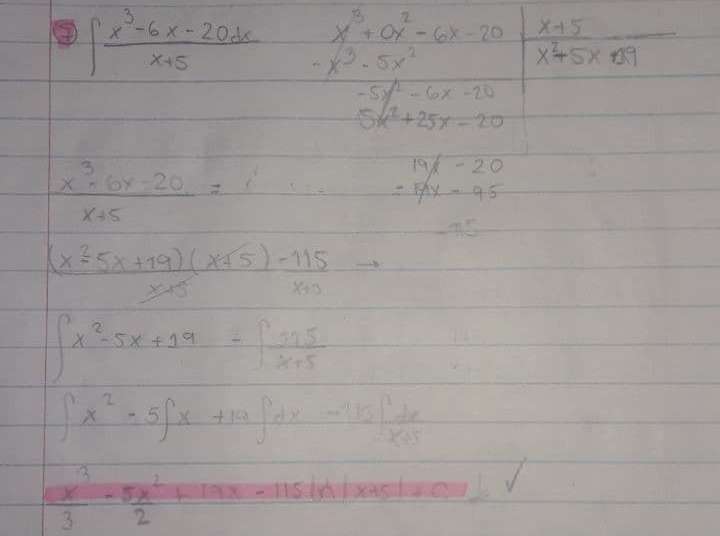 7) ∫ x³-6x-20dx / x+5   x³+0x²-6x-20 | x+5
-x³-5x²   x²+5x+19
-5x²-6x-20
5x²+25x-20
19x-20
x³-6x-20 / x+5 =   -19x-95
-115
(x²-5x+19)(x+5) / x+5 - 115 / x+5 →
∫ x²-5x+19 - ∫ 115 / x+5
∫x² - 5∫x + 19∫dx - 115∫ dx / x+5
x³/3 - 5x²/2 + 19x - 115 ln|x+5| + C ✓